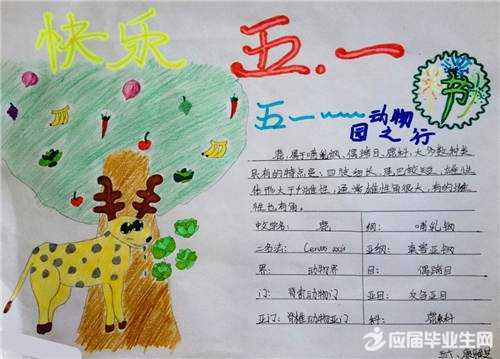 快乐 五.一
节
五一~~~动物
园之行
鹿,属于哺乳纲,偶蹄目,鹿科,大多数种类
具有的特点是:四肢细长,尾巴较短,雄性
体形大于雌性,通常雄性有角,有的雌
性也有角。
中文学名: 鹿 纲: 哺乳纲
二名法: Cervus axis 亚纲: 真兽亚纲
界: 动物界 目: 偶蹄目
门: 脊索动物门 亚目: 反刍亚目
亚门: 脊椎动物亚门 科: 鹿科
应届毕业生网